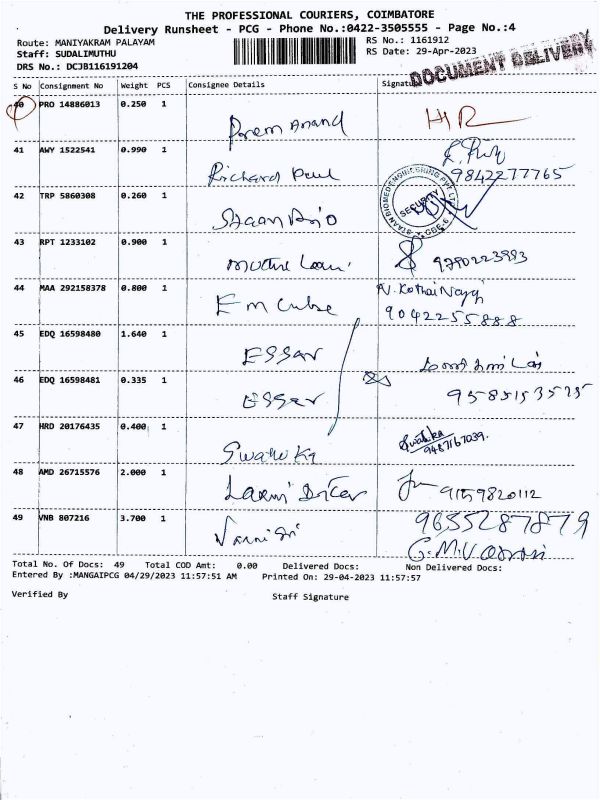 THE PROFESSIONAL COURIERS, COIMBATORE
Delivery Runsheet - PCG - Phone No.:0422-3505555 - Page No.:4
Route: MANIYAKRAM PALAYAM
RS No.: 1161912
Staff: SUDALIMUTHU
RS Date: 29-Apr-2023
DRS No.: DCJB116191204
DOCUMENT DELIVERY
S No Consignment No Weight PCS Consignee Details Signature
40 PRO 14886013 0.250 1 Prem Anand HR
41 AWY 1522541 0.990 1 Richard Paul 9842277765
42 TRP 5860308 0.260 1 Staan Bio
STAAN BIOMED ENGINEERING PVT LTD
SECURITY
CBE-6
43 RPT 1233102 0.900 1 9790223993
44 MAA 292158378 0.800 1 Em Cube N. Kothai Nayaki
9042255888
45 EDQ 16598480 1.640 1 ESSar
46 EDQ 16598481 0.335 1 ESSar 9585153525
47 HRD 20176435 0.400 1 Swathika Swathika
9487167039.
48 AMD 26715576 2.000 1 Laxmi 9159820112
49 VNB 807216 3.700 1 9655287879
Total No. Of Docs: 49 Total COD Amt: 0.00 Delivered Docs: Non Delivered Docs:
Entered By :MANGAIPCG 04/29/2023 11:57:51 AM Printed On: 29-04-2023 11:57:57
Verified By Staff Signature